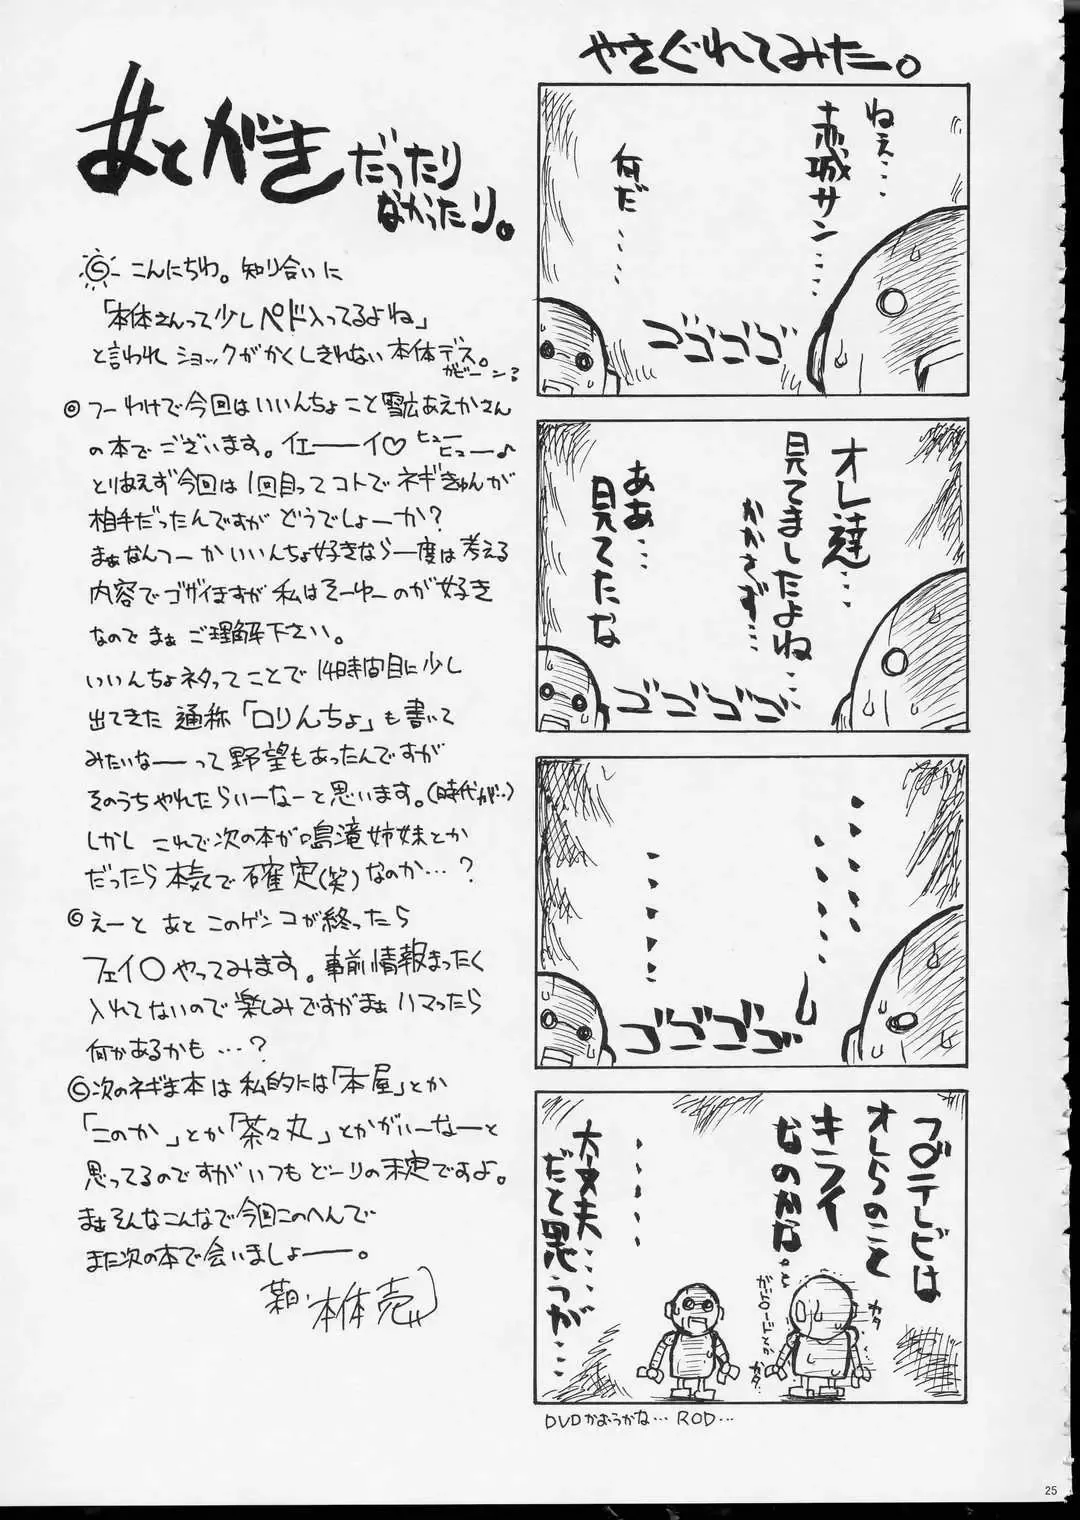 やさぐれてみた。
ねぇ・・・
赤城サン・・・・
何だ・・・・
ゴゴゴゴ
オレ達・・・
見てましたよね
かかさず・・・
ああ・・・
見てたな
ゴゴゴゴ
・・・・・
・・・・・
・・・・・
ゴゴゴゴ
フ○テレビは
オレらのこと
キライ
なのかなっ
カタ
カタ・・
・・・・・
大丈夫・・・
だと思うが・・・
DVDかおうかな… ROD…
あとがき だったり
なかったり。
こんにちわ。知り合いに
「本体さんって少しペド入ってるよね」
と言われショックがかくしきれない本体デス。
ガビーン
つーわけで今回はいいんちょこと雪広あえかさん
の本でございます。イエーーイ♡ ヒューヒュー♪
とりあえず今回は1回目ってコトでネギきゅんが
相手だったんですがどうでしょーか?
まぁなんつーかいいんちょ好きなら一度は考える
内容でゴザイますが私はそーゆーのが好き
なのでまぁご理解下さい。
いいんちょネタってことで14時間目に少し
出てきた通称「ロりんちょ」も書いて
みたいなーって野望もあったんですが
そのうちやれたらいーなーと思います。(時代が…)
しかしこれで次の本が鳴滝姉妹とか
だったら本気で確定(笑)なのか…?
えーとあとこのゲンコが終ったら
フェイ○やってみます。事前情報まったく
入れてないので楽しみですがまぁハマったら
何かあるかも…?
次のネギま本は私的には「本屋」とか
「このか」とか「茶々丸」とかがいーなーと
思ってるのですがいつもどーりの未定ですよ。
まぁそんなこんなで今回このへんで
また次の本で会いましょーー。
本体売
25